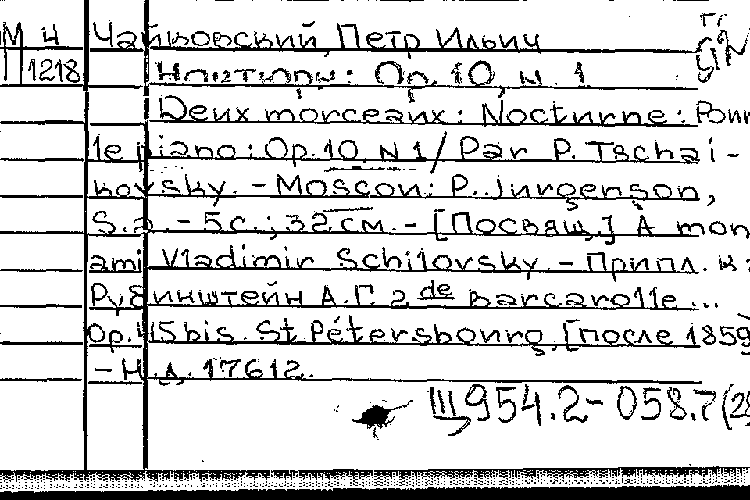 М 4 Чайковский, Петр Ильич
П 1218 Ноктюрн: Op. 10, N. 1
Deux morceaux: Nocturne: Pour
le piano: Op. 10 N 1 / Par P. Tschai-
kovsky. – Moscou: P. Jurgenson,
S.a. – 5 с.; 32 см. – [Посвящ.] A mon
ami Vladimir Schilovsky. – Припл. к:
Рубинштейн А.Г. 2 de barcarolle...
Op. 45 bis. St Pétersbourg, [после 1859]
– Н.д. 17612.
Щ954.2-058.7(2